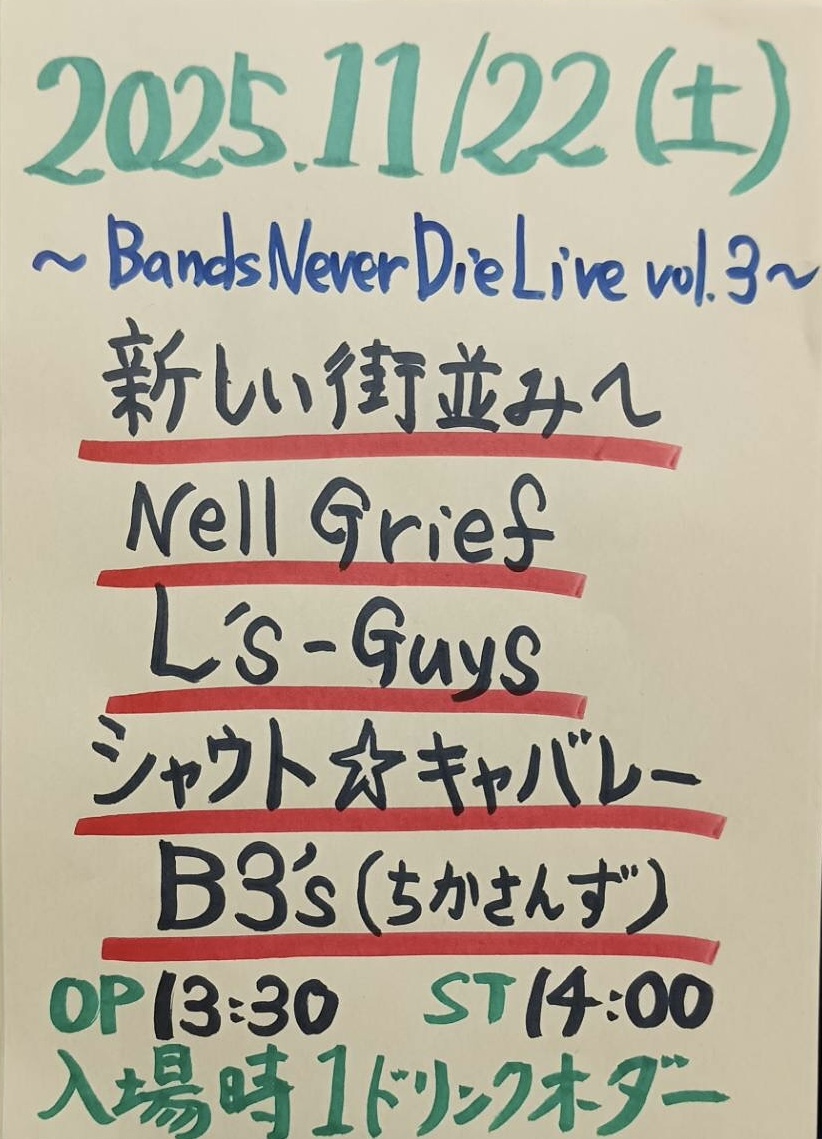 2025.11/22(土)
～BandsNeverDieLive vol.3～
新しい街並みへ
Nell Grief
L's-Guys
シャウト☆キャバレー
B3's(ちかさんず)
OP13:30 ST14:00
入場時1ドリンクオーダー